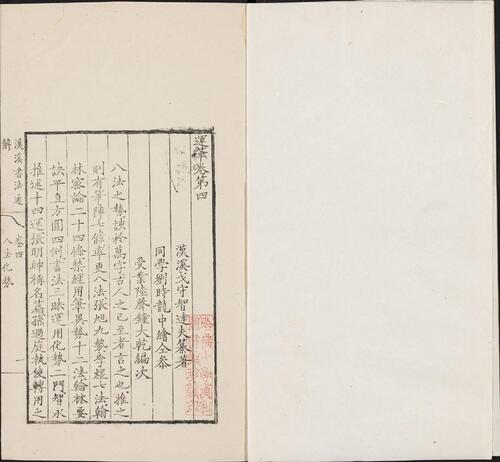 運筆卷第四
漢溪戈守智達夫纂著
同學劉時龍中繪仝叅
受業陸聲鐘大乾編次
八法之勢該於萬字古人之已至者言之也推之
則有筆陣七條率更八法張旭九勢李程七法翰
林密論二十四條禁經用筆異勢十二法翰林要
訣平直方圓四例書法三昧運用化勢二門智永
推述十四運張明紳稱名篇孫過庭執使轉用之
漢溪書法通解
卷四
八法化勢
一